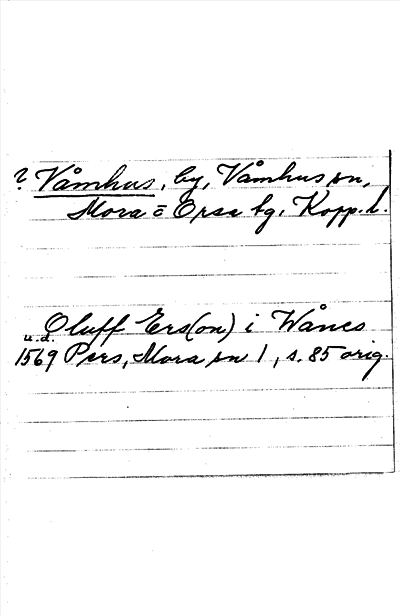 ? Våmhus, by, Våmhus sn,
Mora = Orsa tg. Kopp. l.
Oluff Ers(on) i Wånes
u.d.
1569 Pers, Mora sn 1, s. 85 orig.